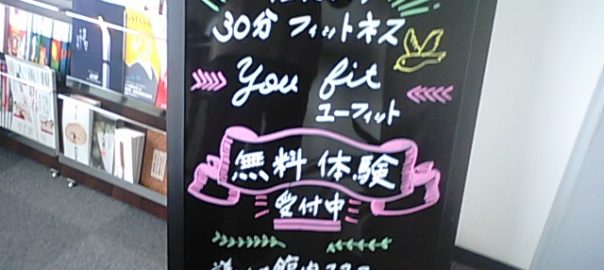 30分 フィットネス
You fit
ユーフィット
無料 体験
受付中